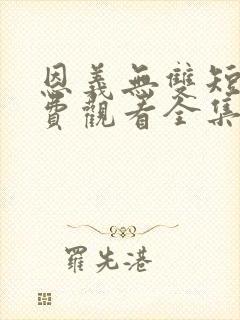 恩義無雙短
費觀看全集
羅先港